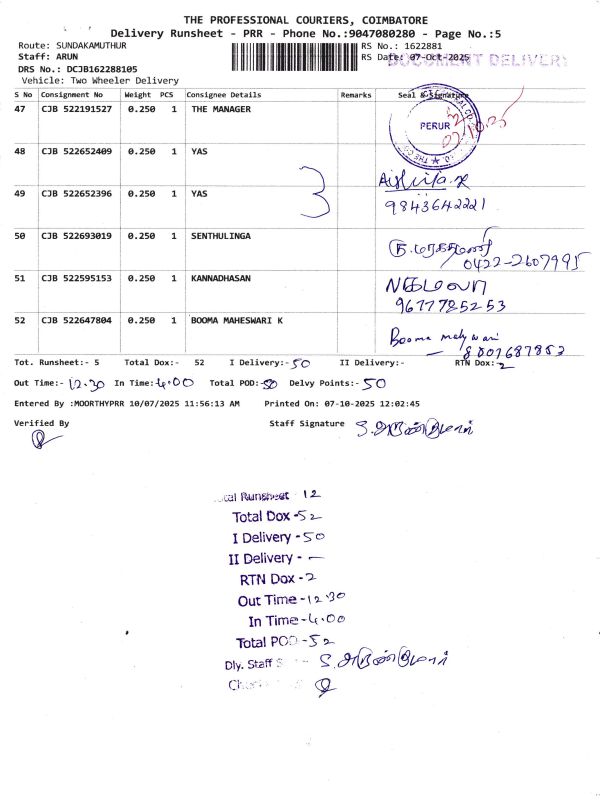 THE PROFESSIONAL COURIERS, COIMBATORE
Delivery Runsheet - PRR - Phone No.:9047080280 - Page No.:5
Route: SUNDAKAMUTHUR RS No.: 1622881
Staff: ARUN RS Date: 07-Oct-2025
DOCUMENT DELIVERY
DRS No.: DCJB162288105
Vehicle: Two Wheeler Delivery
S No Consignment No Weight PCS Consignee Details Remarks Seal & Signature
47 CJB 522191527 0.250 1 THE MANAGER
PERUR
48 CJB 522652409 0.250 1 YAS
49 CJB 522652396 0.250 1 YAS
9843642221
50 CJB 522693019 0.250 1 SENTHULINGA
0422-2607995
51 CJB 522595153 0.250 1 KANNADHASAN
9677785253
52 CJB 522647804 0.250 1 BOOMA MAHESWARI K
Tot. Runsheet:- 5 Total Dox:- 52 I Delivery:- 50 II Delivery:- RTN Dox:- 2
Out Time:- 12.30 In Time: 4.00 Total POD:- 50 Delvy Points:- 50
Entered By :MOORTHYPRR 10/07/2025 11:56:13 AM Printed On: 07-10-2025 12:02:45
Verified By Staff Signature
Runsheet 12
Total Dox - 52
I Delivery - 50
II Delivery - —
RTN Dox - 2
Out Time - 12.30
In Time - 4.00
Total POD - 52
Dly. Staff